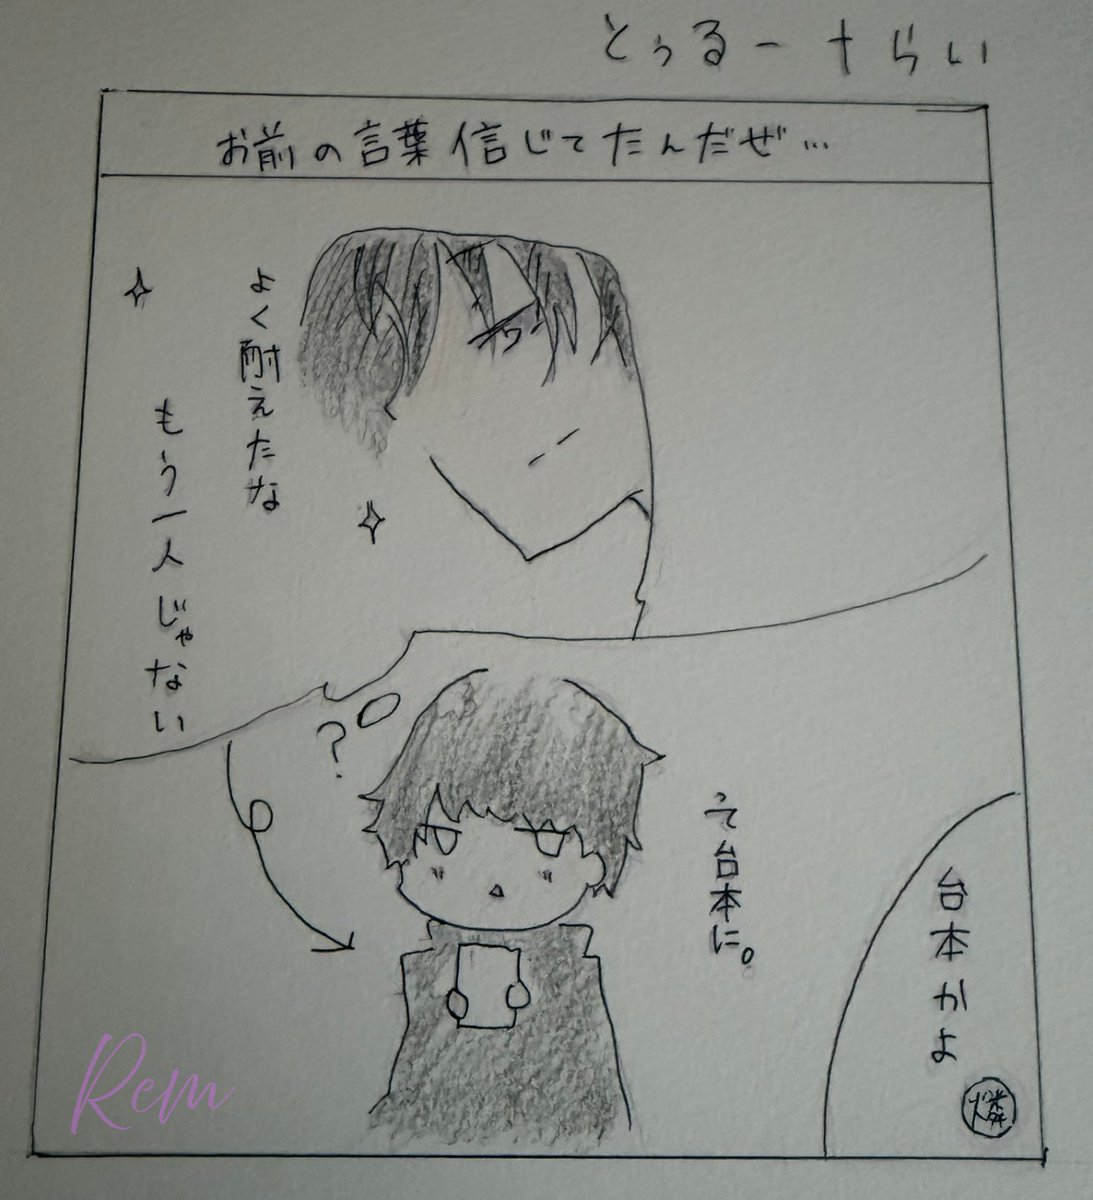 とぅるーすらい
お前の言葉信じてたんだぜ…
よく耐えたな
もう一人じゃない
?
て台本に。
台本かよ
燐
Rem